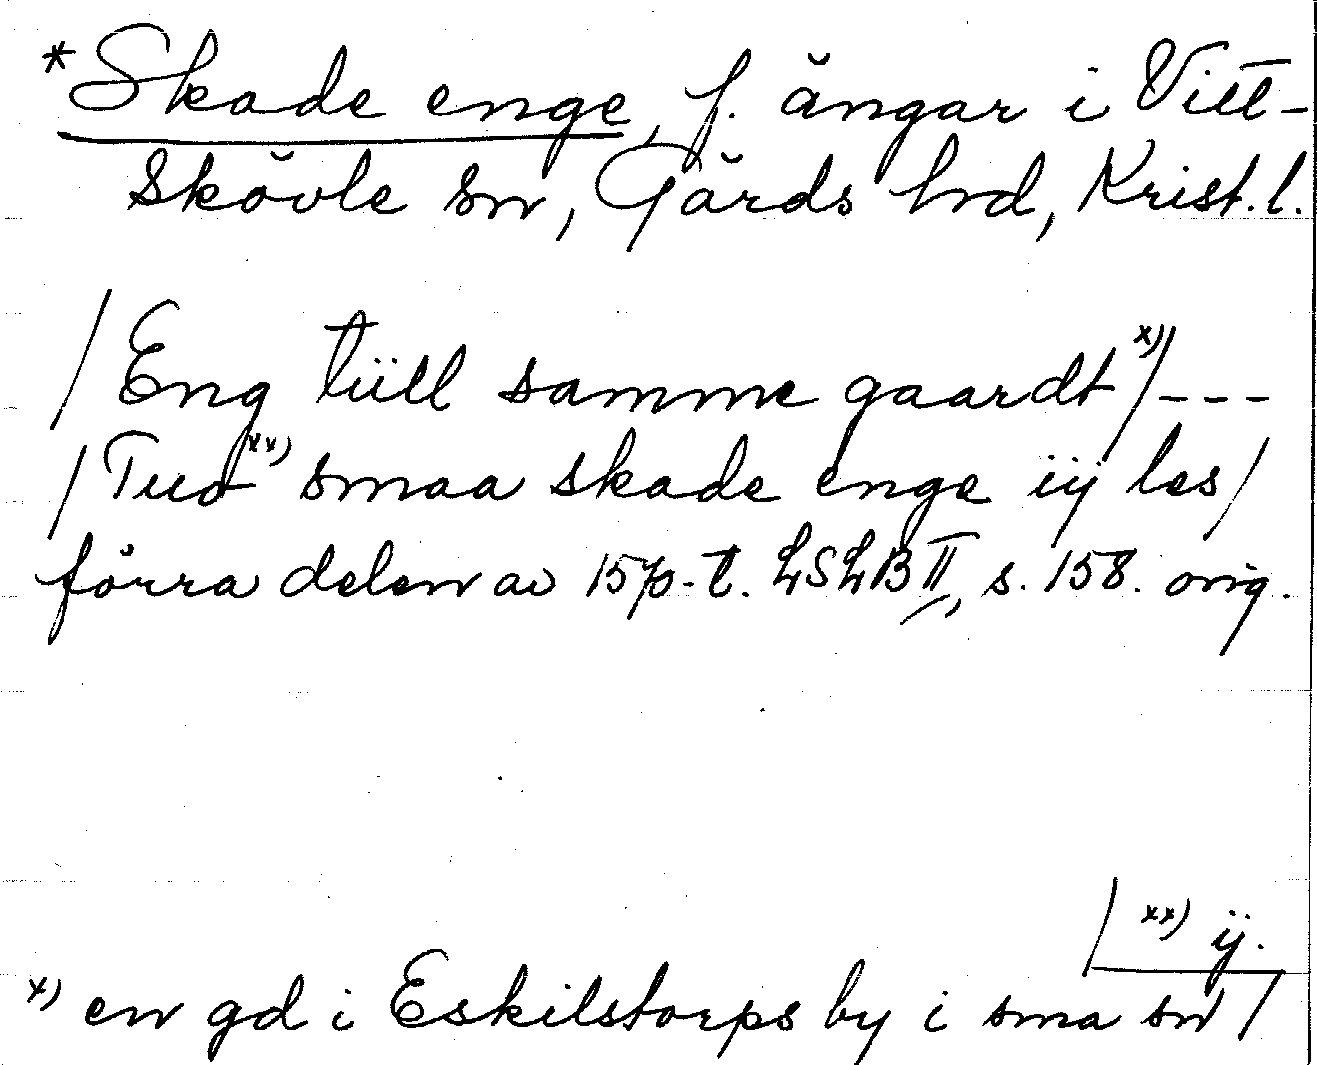 *Skade enge, f. ängar i Vitt-
skövle sn, Gärds hrd, Krist. l.
/Eng tiill samme gaardt x)/---
/Tuo xx) smaa skade enge iij les/
förra delen av 1570-t. LSLB II, s. 158. orig.
xx) ij.
x) en gd i Eskilstorps by i sma sn/